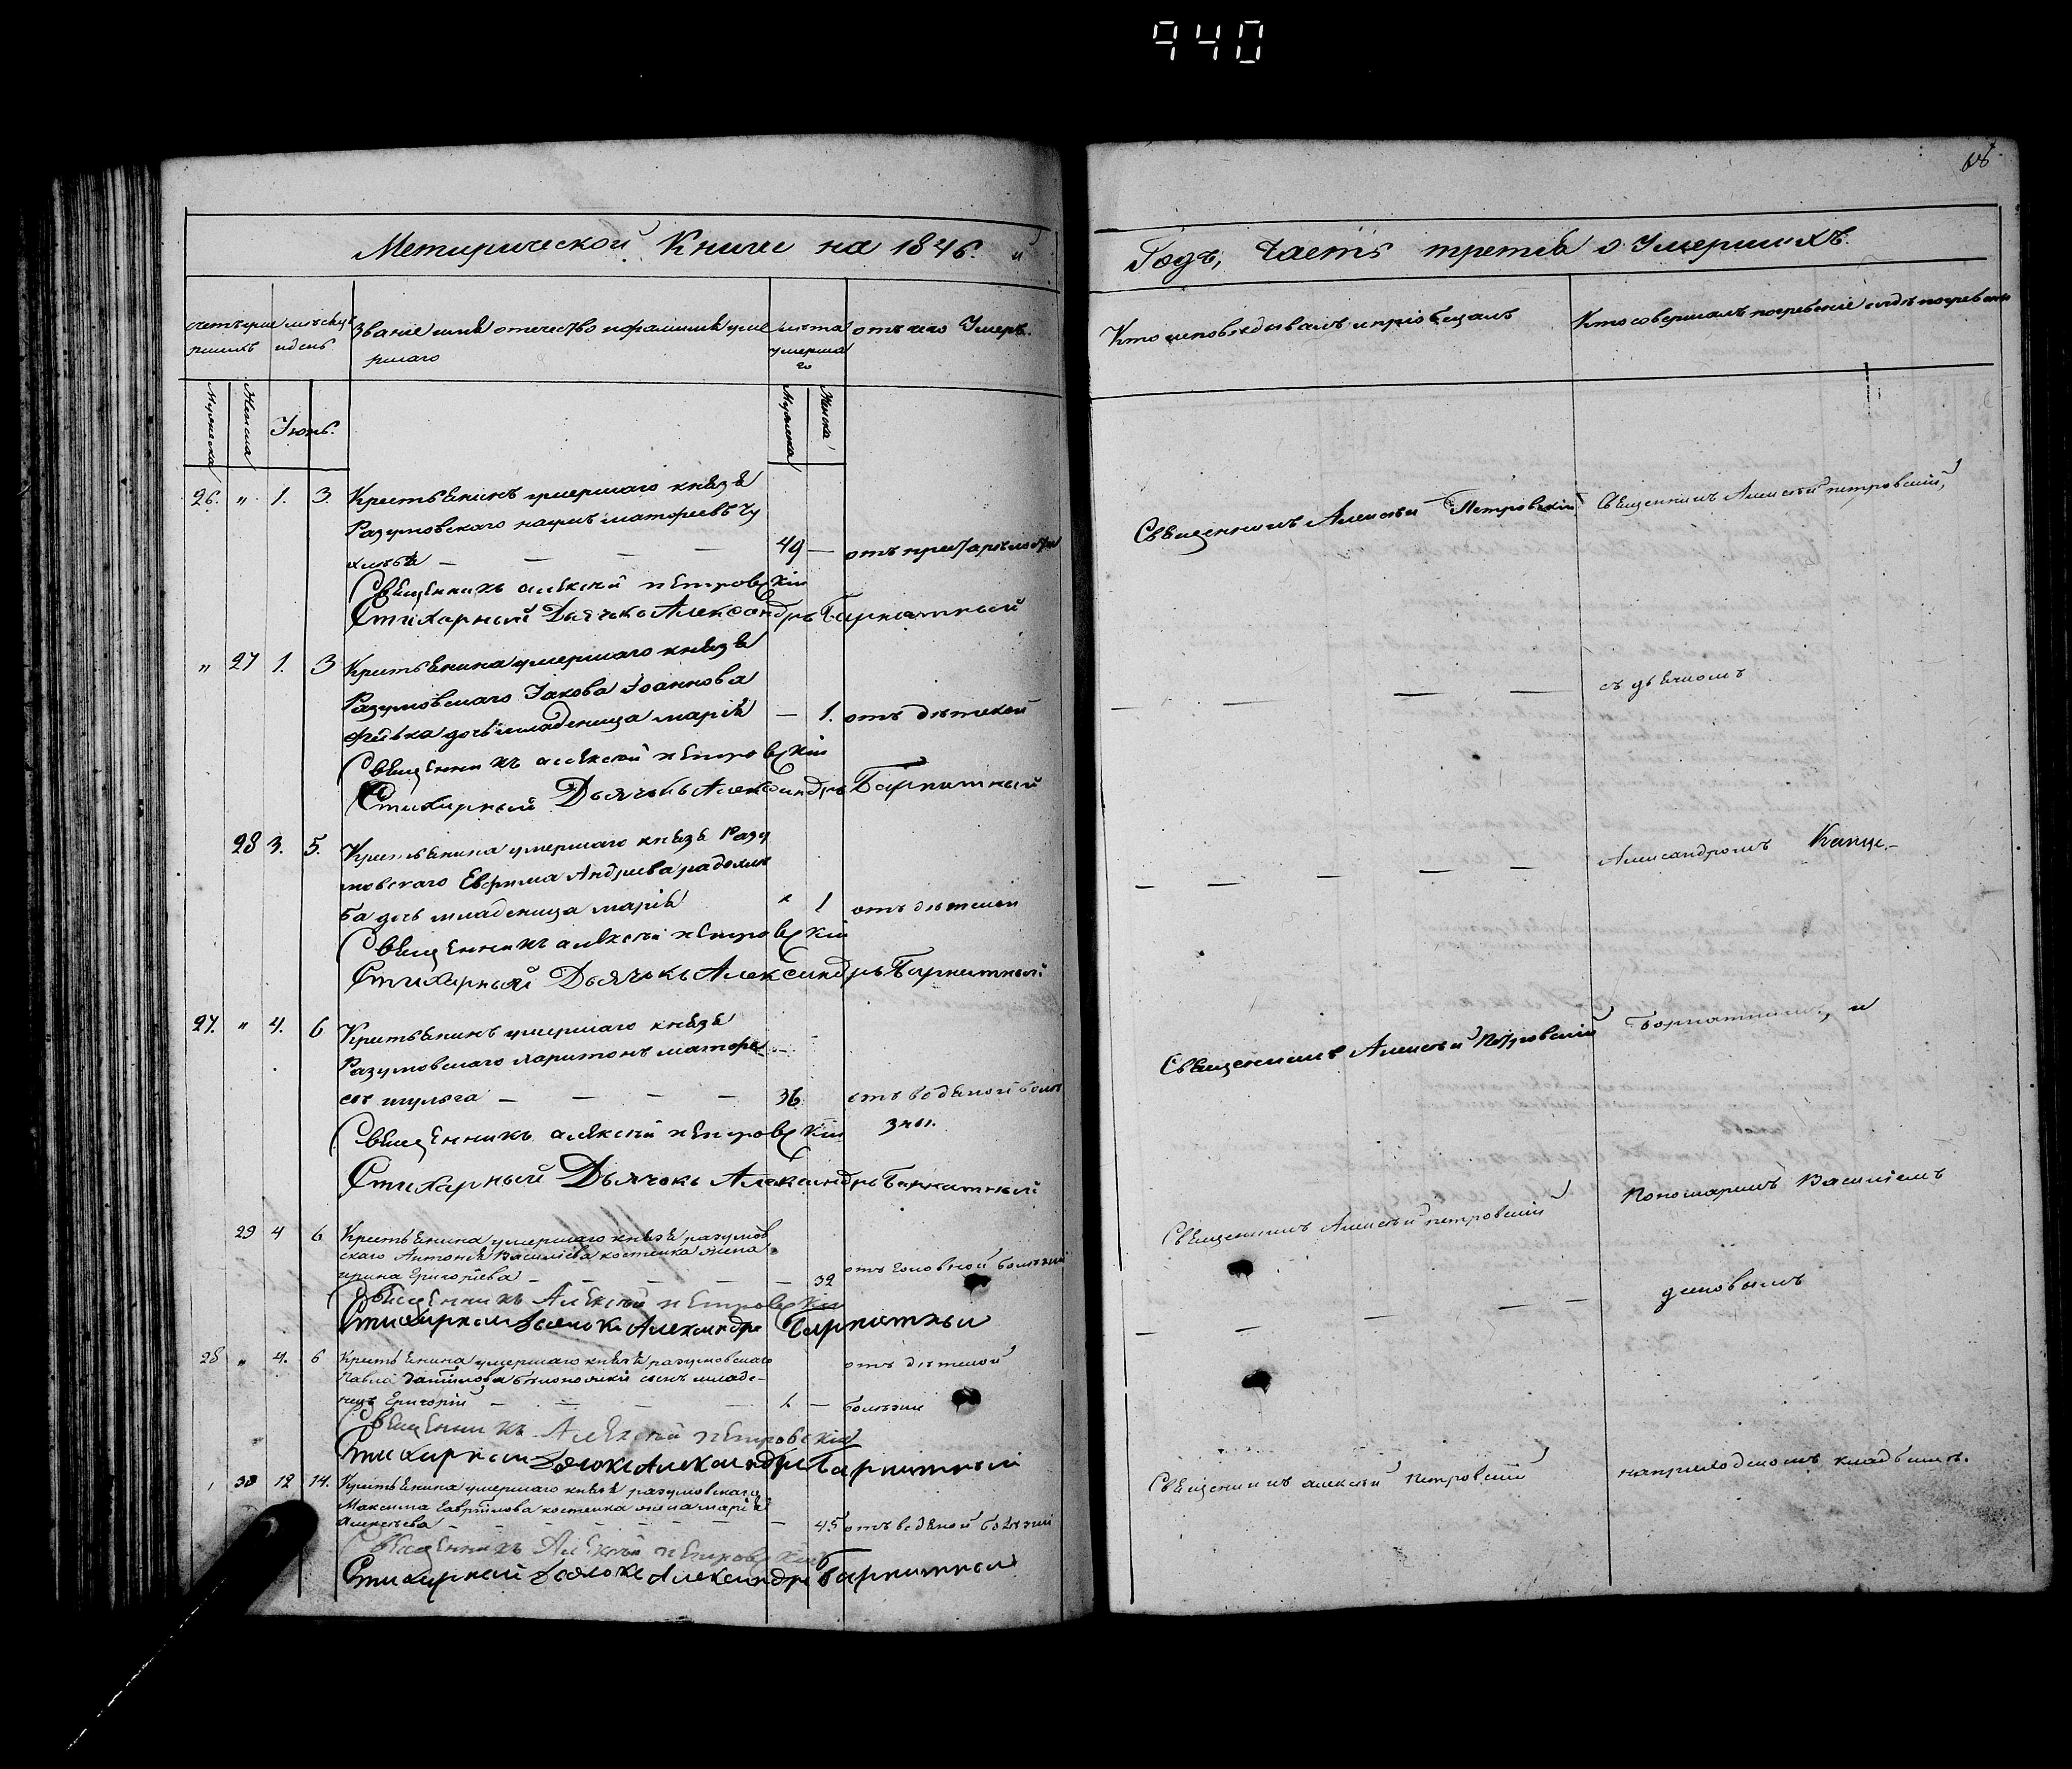 940
Метирической Книги на 1846. й
счетъ уме
ршихъ
мѣсяцъ
и день
Званіе имя отечество и фамилия уме
ршаго
лѣта
умерша
го
отъ чего Умеръ.
Мужеска
Женска
Іюнь.
Мужеска
Женска
26. " 1. 3. Крестьянинъ умершаго князя
Разумовскаго наумъ матфеевъ
49 — отъ престарѣлости
Священникъ алексѣй петровскій
Стихарный Дьячокъ Александръ Барнатный
" 27 1. 3 Крестьянина умершаго князя
Разумовскаго Іакова Іоаннова
дочь младеница марія — 1. отъ дѣтской
Священникъ алексѣй петровскій
Стихарный Дьячокъ Александръ Барнатный
28 3. 5. Крестьянина умершаго князя Разу
мовскаго Евфима Андреева
ба дочь младеница марія " 1 отъ дѣтской
Священникъ алексѣй петровскій
Стихарный Дьячокъ Александръ Барнатный
27. " 4. 6 Крестьянинъ умершаго князя
Разумовскаго харитонъ матфе
евъ шульга — — — — 36 отъ водяной болѣ
зни.
Священникъ алексѣй петровскій
Стихарный Дьячокъ Александръ Барнатный
29 4 6 Крестьянина умершаго князя разумов
скаго Антонія Василіева костенка жена
ирина Григоріева — 32 отъ головной болѣзни
Священникъ Алексѣй петровскій
Стихарный Дьячокъ Александръ Барнатный
28 " 4. 6 Крестьянина умершаго князя разумовскаго отъ дѣтской
Павла Даниилова сынъ младе-
нецъ Григорій — — — 1 — болѣзни
Священникъ Алексѣй петровскій
Стихарный Дьячокъ Александръ Барнатный
30 12 14. Крестьянина умершаго князя разумовскаго
Максима Гавриилова костенка жена марія
Алексѣева — — — 45 отъ водяной болѣзни
Священникъ Алексѣй петровскій
Стихарный Дьячокъ Александръ Барнатный
Годъ, часть третья о Умершихъ.
Кто исповѣдывалъ и пріобщалъ
Кто совершалъ погребеніе и гдѣ погребены
Священникъ Алексѣй Петровскій
Священникъ Алексѣй петровскій,
съ дьячкомъ
Александромъ
Священникъ Алексѣй Петровскій
Барнатнымъ, и
Священникъ Алексѣй петровскій
Пономаремъ Василіемъ
Священникъ алексѣй Петровскій
на приходскомъ кладбищѣ.